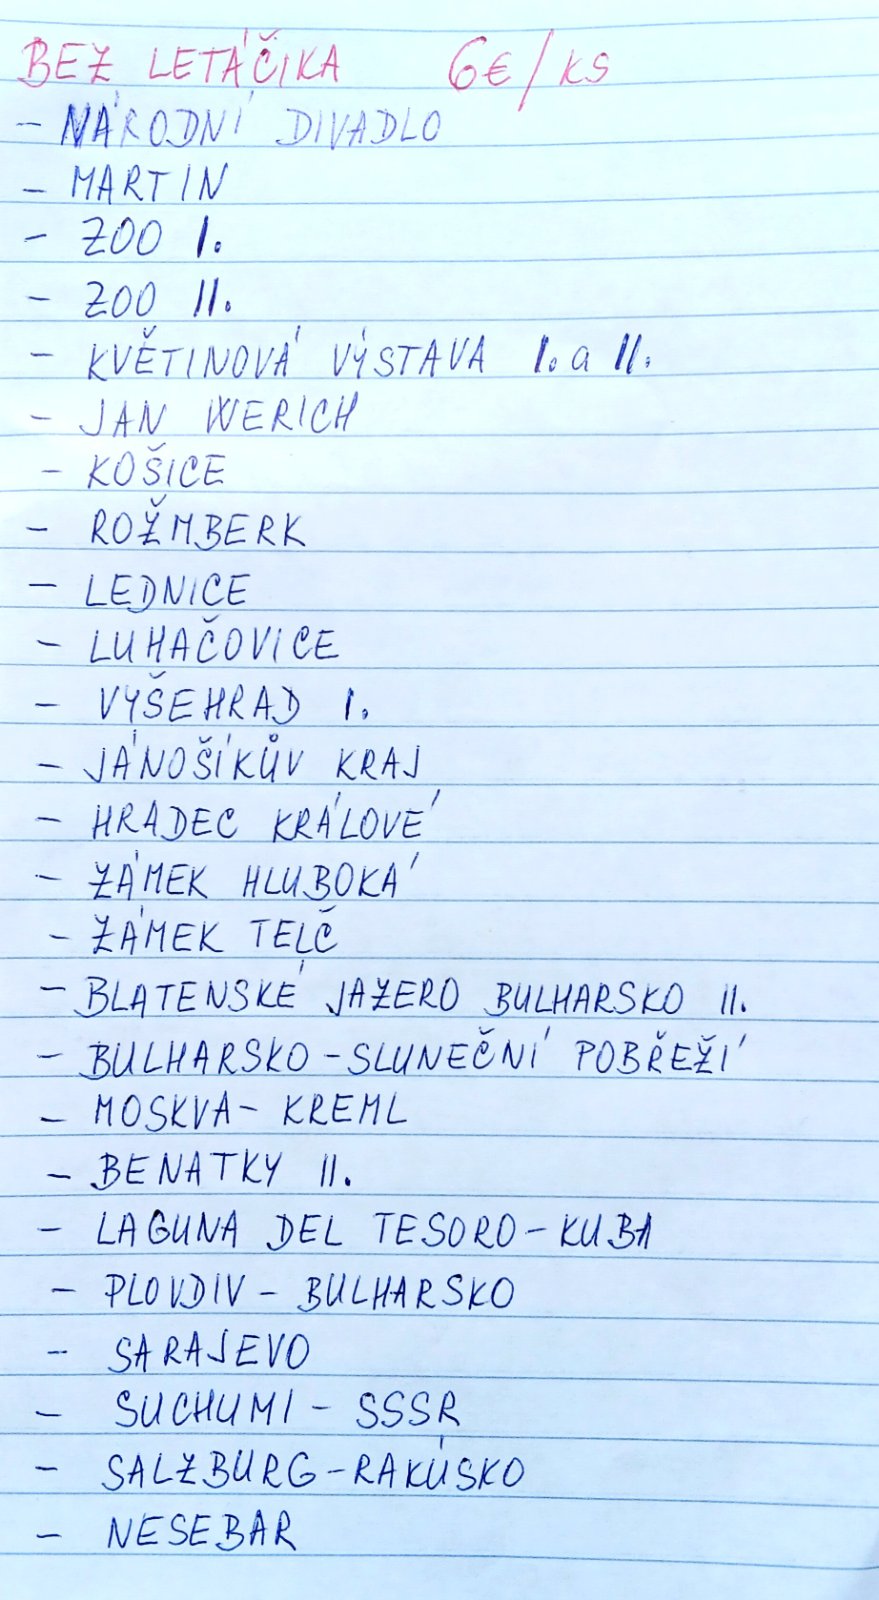 BEZ LETÁČIKA 6€/KS
- NÁRODNÍ DIVADLO
- MARTIN
- ZOO I.
- ZOO II.
- KVĚTINOVÁ VÝSTAVA I. a II.
- JAN WERICH
- KOŠICE
- ROŽMBERK
- LEDNICE
- LUHAČOVICE
- VYŠEHRAD I.
- JÁNOŠÍKŮV KRAJ
- HRADEC KRÁLOVÉ
- ZÁMEK HLUBOKÁ
- ZÁMEK TELČ
- BLATENSKÉ JAZERO BULHARSKO II.
- BULHARSKO - SLUNEČNÍ POBŘEŽÍ
- MOSKVA - KREML
- BENATKY II.
- LAGUNA DEL TESORO - KUBA
- PLOVDIV - BULHARSKO
- SARAJEVO
- SUCHUMI - SSSR
- SALZBURG - RAKÚSKO
- NESEBAR